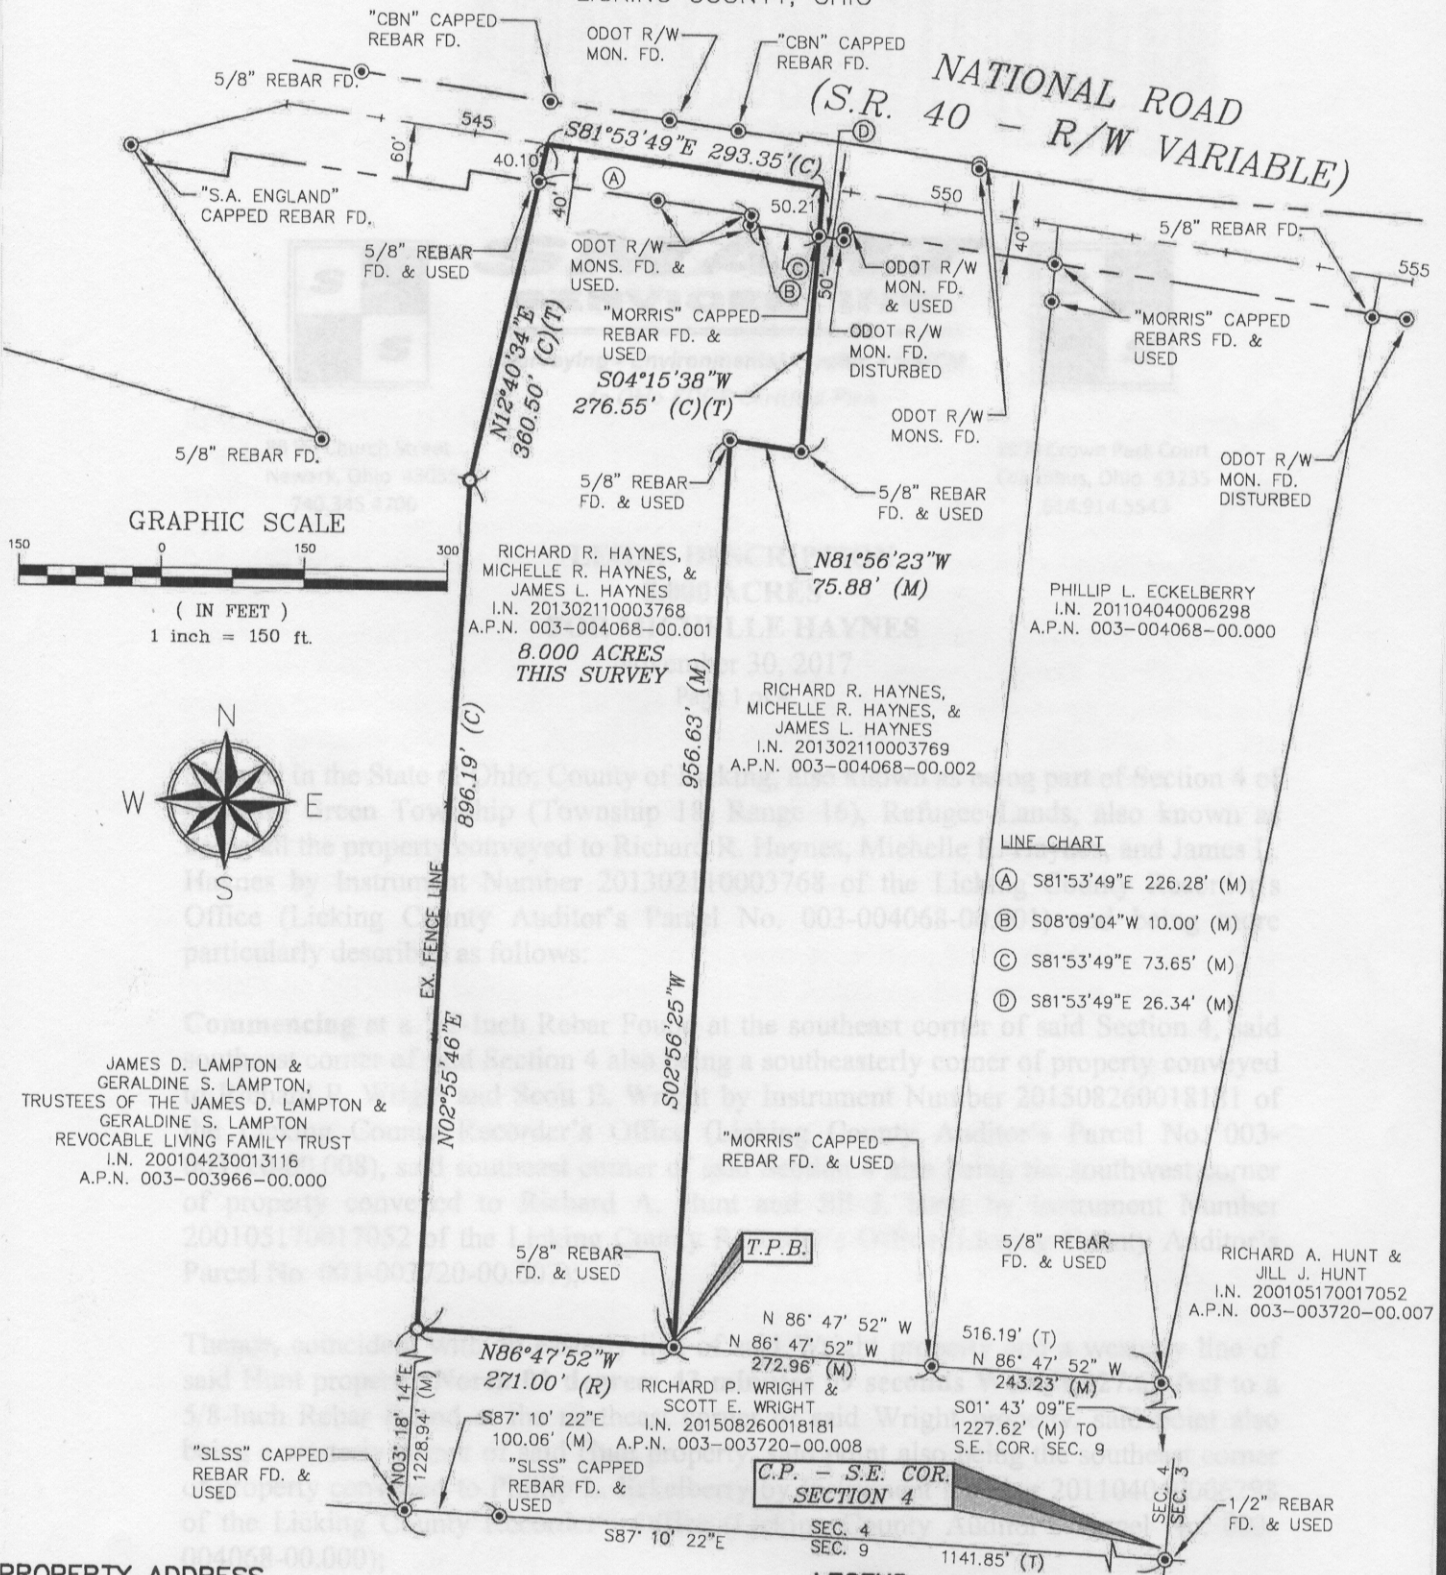 LICKING COUNTY, OHIO
"CBN" CAPPED
REBAR FD.
ODOT R/W
MON. FD.
"CBN" CAPPED
REBAR FD.
5/8" REBAR FD.
NATIONAL ROAD
(S.R. 40 - R/W VARIABLE)
545
60'
S81°53'49"E 293.35'(C)
D
40.10'
A
40'
50.21'
550
40'
5/8" REBAR FD.
555
"S.A. ENGLAND"
CAPPED REBAR FD.
5/8" REBAR
FD. & USED
ODOT R/W
MONS. FD. &
USED.
C
B
50'
ODOT R/W
MON. FD.
& USED
"MORRIS" CAPPED
REBAR FD. &
USED
ODOT R/W
MON. FD.
DISTURBED
"MORRIS" CAPPED
REBARS FD. &
USED
N12°40'34"E
360.50' (C)(T)
S04°15'38"W
276.55' (C)(T)
ODOT R/W
MONS. FD.
5/8" REBAR FD.
5/8" REBAR
FD. & USED
5/8" REBAR
FD. & USED
ODOT R/W
MON. FD.
DISTURBED
GRAPHIC SCALE
150 0 150 300
( IN FEET )
1 inch = 150 ft.
RICHARD R. HAYNES,
MICHELLE R. HAYNES, &
JAMES L. HAYNES
I.N. 201302110003768
A.P.N. 003-004068-00.001
8.000 ACRES
THIS SURVEY
N81°56'23"W
75.88' (M)
PHILLIP L. ECKELBERRY
I.N. 201104040006298
A.P.N. 003-004068-00.000
RICHARD R. HAYNES,
MICHELLE R. HAYNES, &
JAMES L. HAYNES
I.N. 201302110003769
A.P.N. 003-004068-00.002
N
W E
S
896.19' (C)
956.63' (M)
EX. FENCE LINE
N02°55'46"E
S02°56'25"W
LINE CHART
A S81°53'49"E 226.28' (M)
B S08°09'04"W 10.00' (M)
C S81°53'49"E 73.65' (M)
D S81°53'49"E 26.34' (M)
JAMES D. LAMPTON &
GERALDINE S. LAMPTON,
TRUSTEES OF THE JAMES D. LAMPTON &
GERALDINE S. LAMPTON
REVOCABLE LIVING FAMILY TRUST
I.N. 200104230013116
A.P.N. 003-003966-00.000
"MORRIS" CAPPED
REBAR FD. & USED
5/8" REBAR
FD. & USED
T.P.B.
5/8" REBAR
FD. & USED
RICHARD A. HUNT &
JILL J. HUNT
I.N. 200105170017052
A.P.N. 003-003720-00.007
N86°47'52"W
271.00' (R)
N 86° 47' 52" W
516.19' (T)
N 86° 47' 52" W
272.96' (M)
N 86° 47' 52" W
243.23' (M)
RICHARD P. WRIGHT &
SCOTT E. WRIGHT
I.N. 201508260018181
A.P.N. 003-003720-00.008
S01° 43' 09"E
1227.62' (M) TO
S.E. COR. SEC. 9
N03° 18' 14"E
1228.94' (M)
S87° 10' 22"E
100.06' (M)
"SLSS" CAPPED
REBAR FD. &
USED
"SLSS" CAPPED
REBAR FD. &
USED
C.P. - S.E. COR.
SECTION 4
SEC. 4
SEC. 3
1/2" REBAR
FD. & USED
S87° 10' 22"E
SEC. 4
SEC. 9
1141.85' (T)
PROPERTY ADDRESS
LEGEND